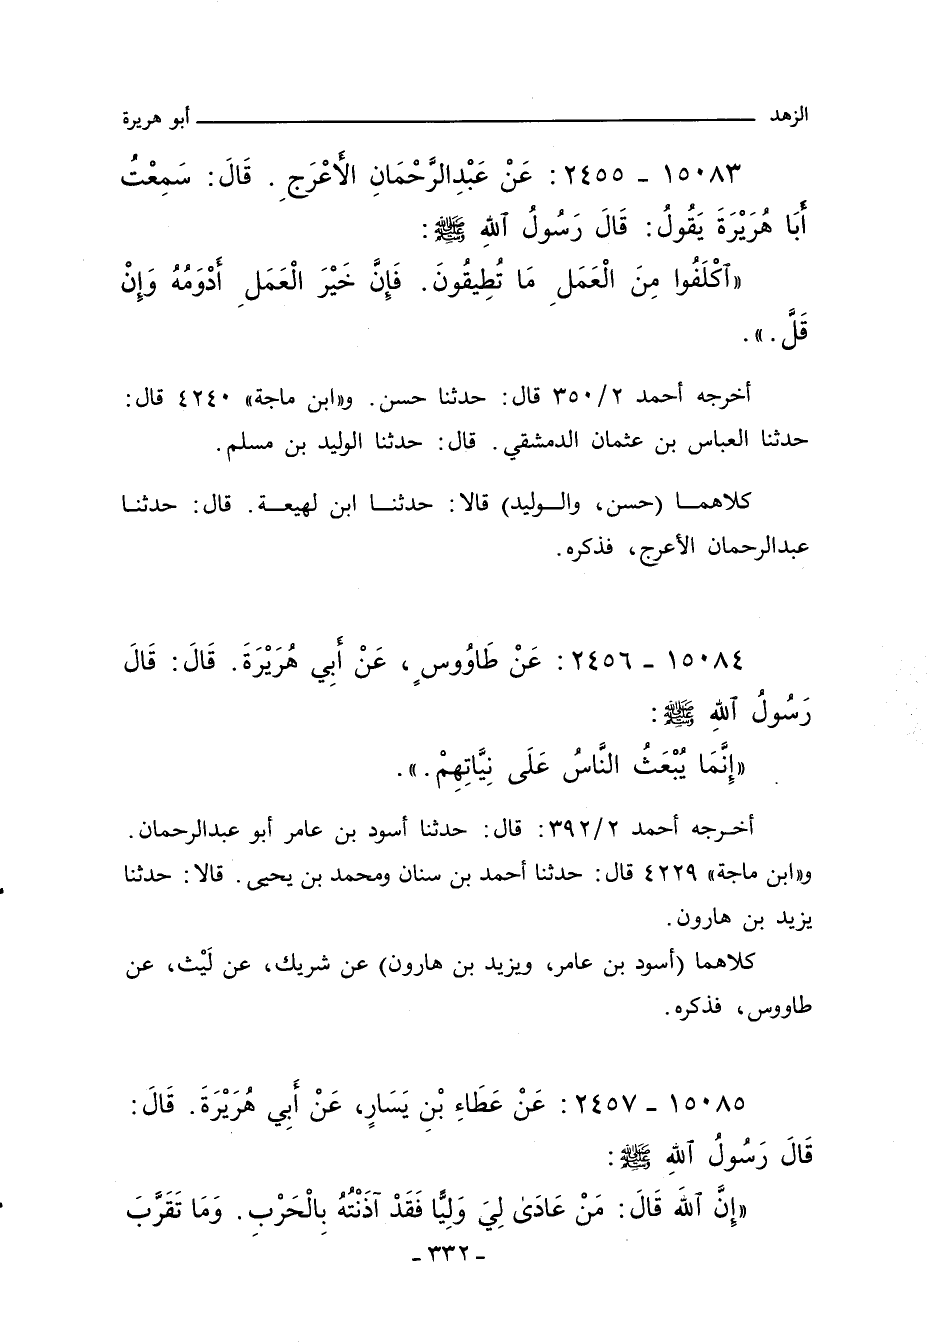 الزهد ــــــــــــــــــــــــــــــــ أبو هريرة
١٥٠٨٣ ـ ٢٤٥٥ : عَنْ عَبْدِالرَّحْمَانِ الأَعْرَجِ . قَالَ : سَمِعْتُ
أَبَا هُرَيْرَةَ يَقُولُ : قَالَ رَسُولُ ٱللهِ ﷺ :
«ٱكْلَفُوا مِنَ الْعَمَلِ مَا تُطِيقُونَ . فَإِنَّ خَيْرَ الْعَمَلِ أَدْوَمُهُ وَإِنْ
قَلَّ . » .
أخرجه أحمد ٣٥٠/٢ قال : حدثنا حسن . و«ابن ماجة» ٤٢٤٠ قال :
حدثنا العباس بن عثمان الدمشقي . قال : حدثنا الوليد بن مسلم .
كلاهمـا (حسن، والـوليد) قالا : حدثنـا ابن لهيعـة . قال : حدثنـا
عبدالرحمان الأعرج، فذكره .
١٥٠٨٤ ـ ٢٤٥٦ : عَنْ طَاوُوسٍ ، عَنْ أَبِي هُرَيْرَةَ . قَالَ : قَالَ
رَسُولُ ٱللهِ ﷺ :
«إِنَّمَا يُبْعَثُ النَّاسُ عَلَى نِيَّاتِهِمْ . » .
أخـرجه أحمد ٣٩٢/٢ : قال : حدثنا أسود بن عامر أبو عبدالرحمان .
و«ابن ماجة» ٤٢٢٩ قال : حدثنا أحمد بن سنان ومحمد بن يحيى . قالا : حدثنا
يزيد بن هارون .
كلاهما (أسود بن عامر، ويزيد بن هارون) عن شريك، عن لَيْث، عن
طاووس، فذكره .
١٥٠٨٥ ـ ٢٤٥٧ : عَنْ عَطَاءِ بْنِ يَسَارٍ، عَنْ أَبِي هُرَيْرَةَ . قَالَ :
قَالَ رَسُولُ ٱللهِ ﷺ :
«إِنَّ ٱللهَ قَالَ : مَنْ عَادَىٰ لِيَ وَلِيًّا فَقَدْ آذَنْتُهُ بِالْحَرْبِ . وَمَا تَقَرَّبَ
ـ ٣٣٢ ـ